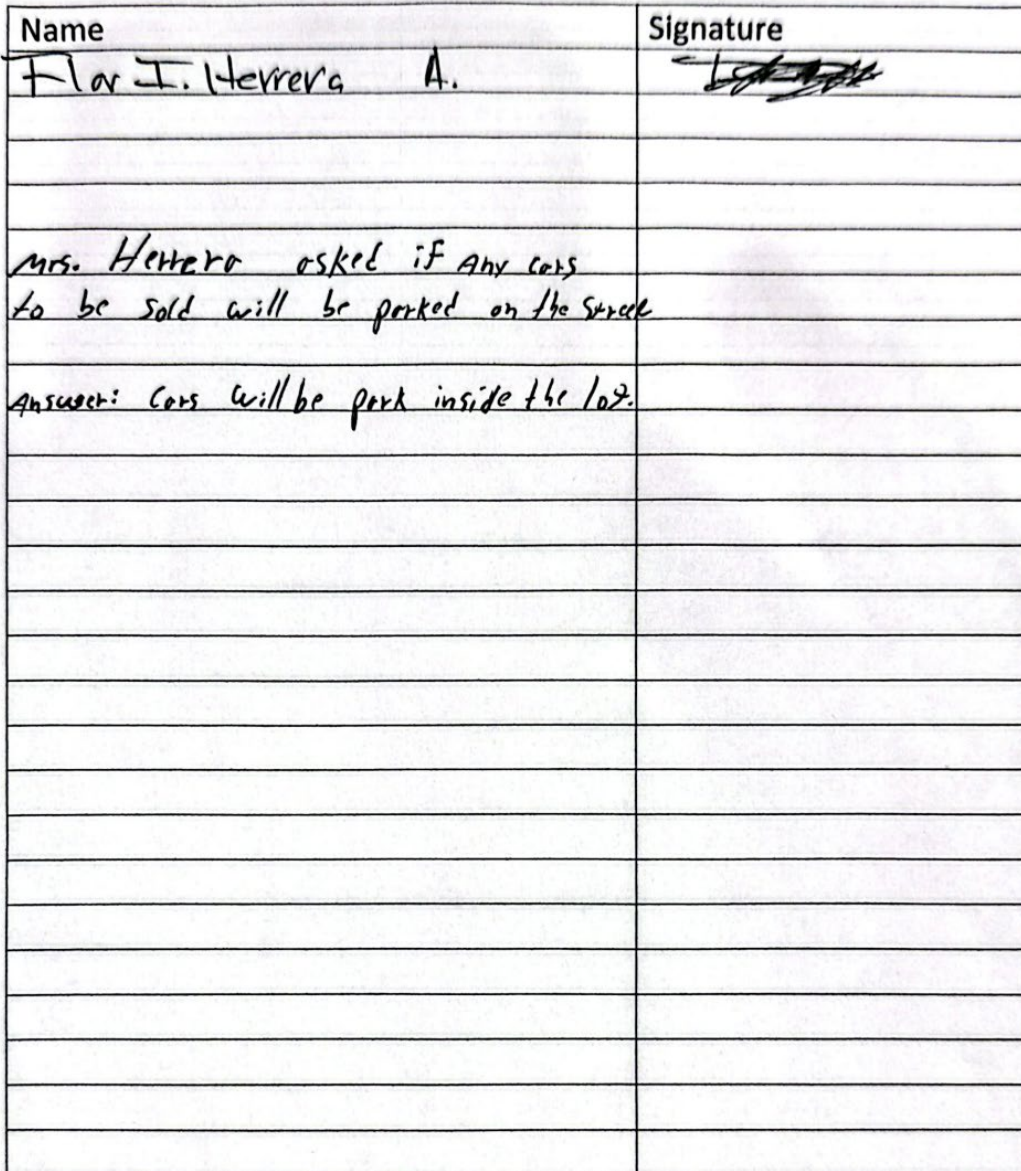 Name Signature
Flor I. Herrera A.
Mrs. Herrera asked if Any cars
to be sold will be parked on the street
Answer: Cars will be park inside the lot.